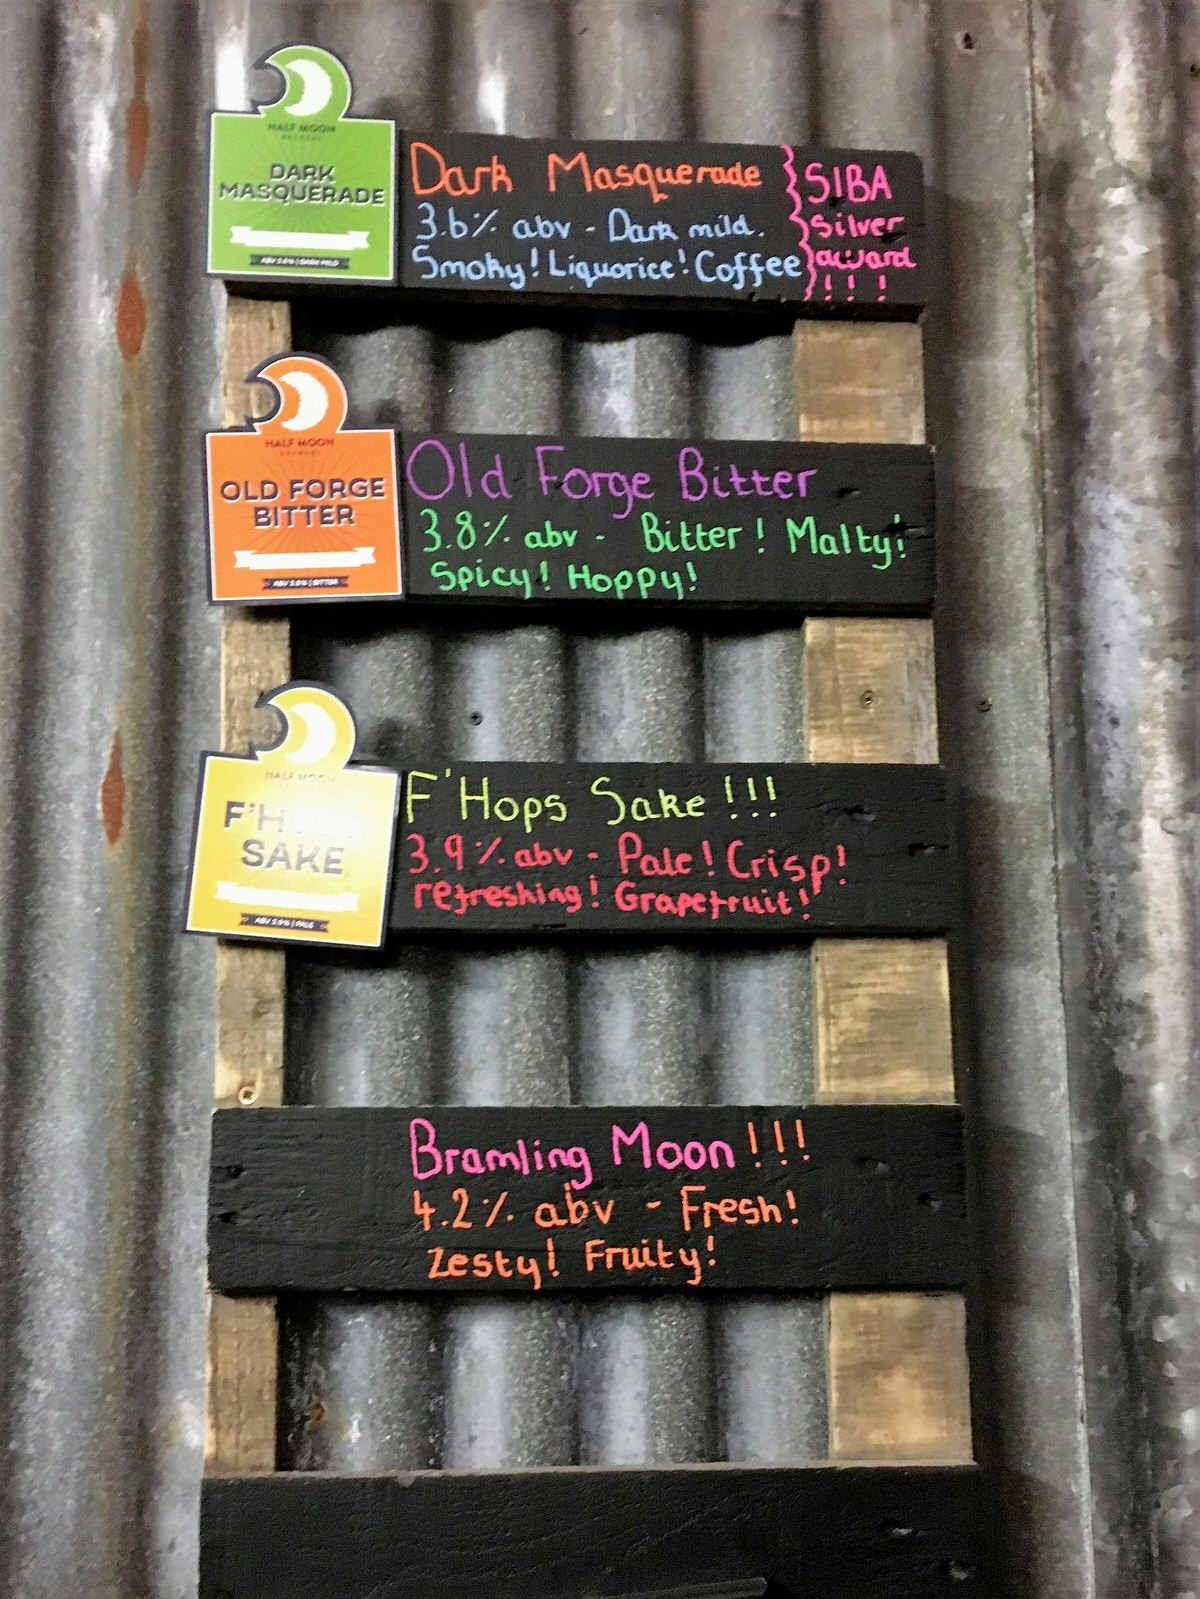 HALF MOON
BREWERY
DARK
MASQUERADE
ABV 3.6% | DARK MILD
Dark Masquerade
3.6% abv - Dark mild.
Smoky! Liquorice! Coffee
SIBA
Silver
award
! ! !
HALF MOON
BREWERY
OLD FORGE
BITTER
ABV 3.8% | BITTER
Old Forge Bitter
3.8% abv - Bitter! Malty!
Spicy! Hoppy!
HALF MOON
F'H
SAKE
ABV 3.9% | PALE
F'Hops Sake!!!
3.9% abv - Pale! Crisp!
refreshing! Grapefruit!
Bramling Moon!!!
4.2% abv - Fresh!
Zesty! Fruity!